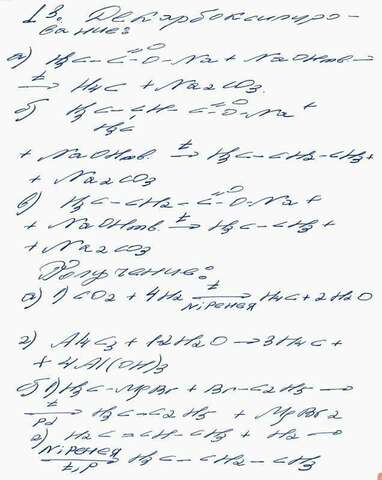 13. Декарбоксилиро-
вание:
а) H3C – C(=O) – O – Na + NaOH тв. →
t→ H4C + Na2CO3.
б) H3C – CH – C(=O) – O – Na +
H3C
+ NaOH тв. t→ H3C – CH2 – CH3 +
+ Na2CO3
в) H3C – CH2 – C(=O) – O – Na +
+ NaOH тв. t→ H3C – CH3 +
+ Na2CO3
Получение:
а) 1) CO2 + 4H2 t→ Ni Ренея H4C + 2H2O
2) Al4C3 + 12H2O → 3H4C +
+ 4Al(OH)3
б) 1) H3C – MgBr + Br – C2H5 →
t→ Pd H3C – C2H5 + MgBr2
2) H2C = CH – CH3 + H2 →
Ni Ренея→ t, p H3C – CH2 – CH3